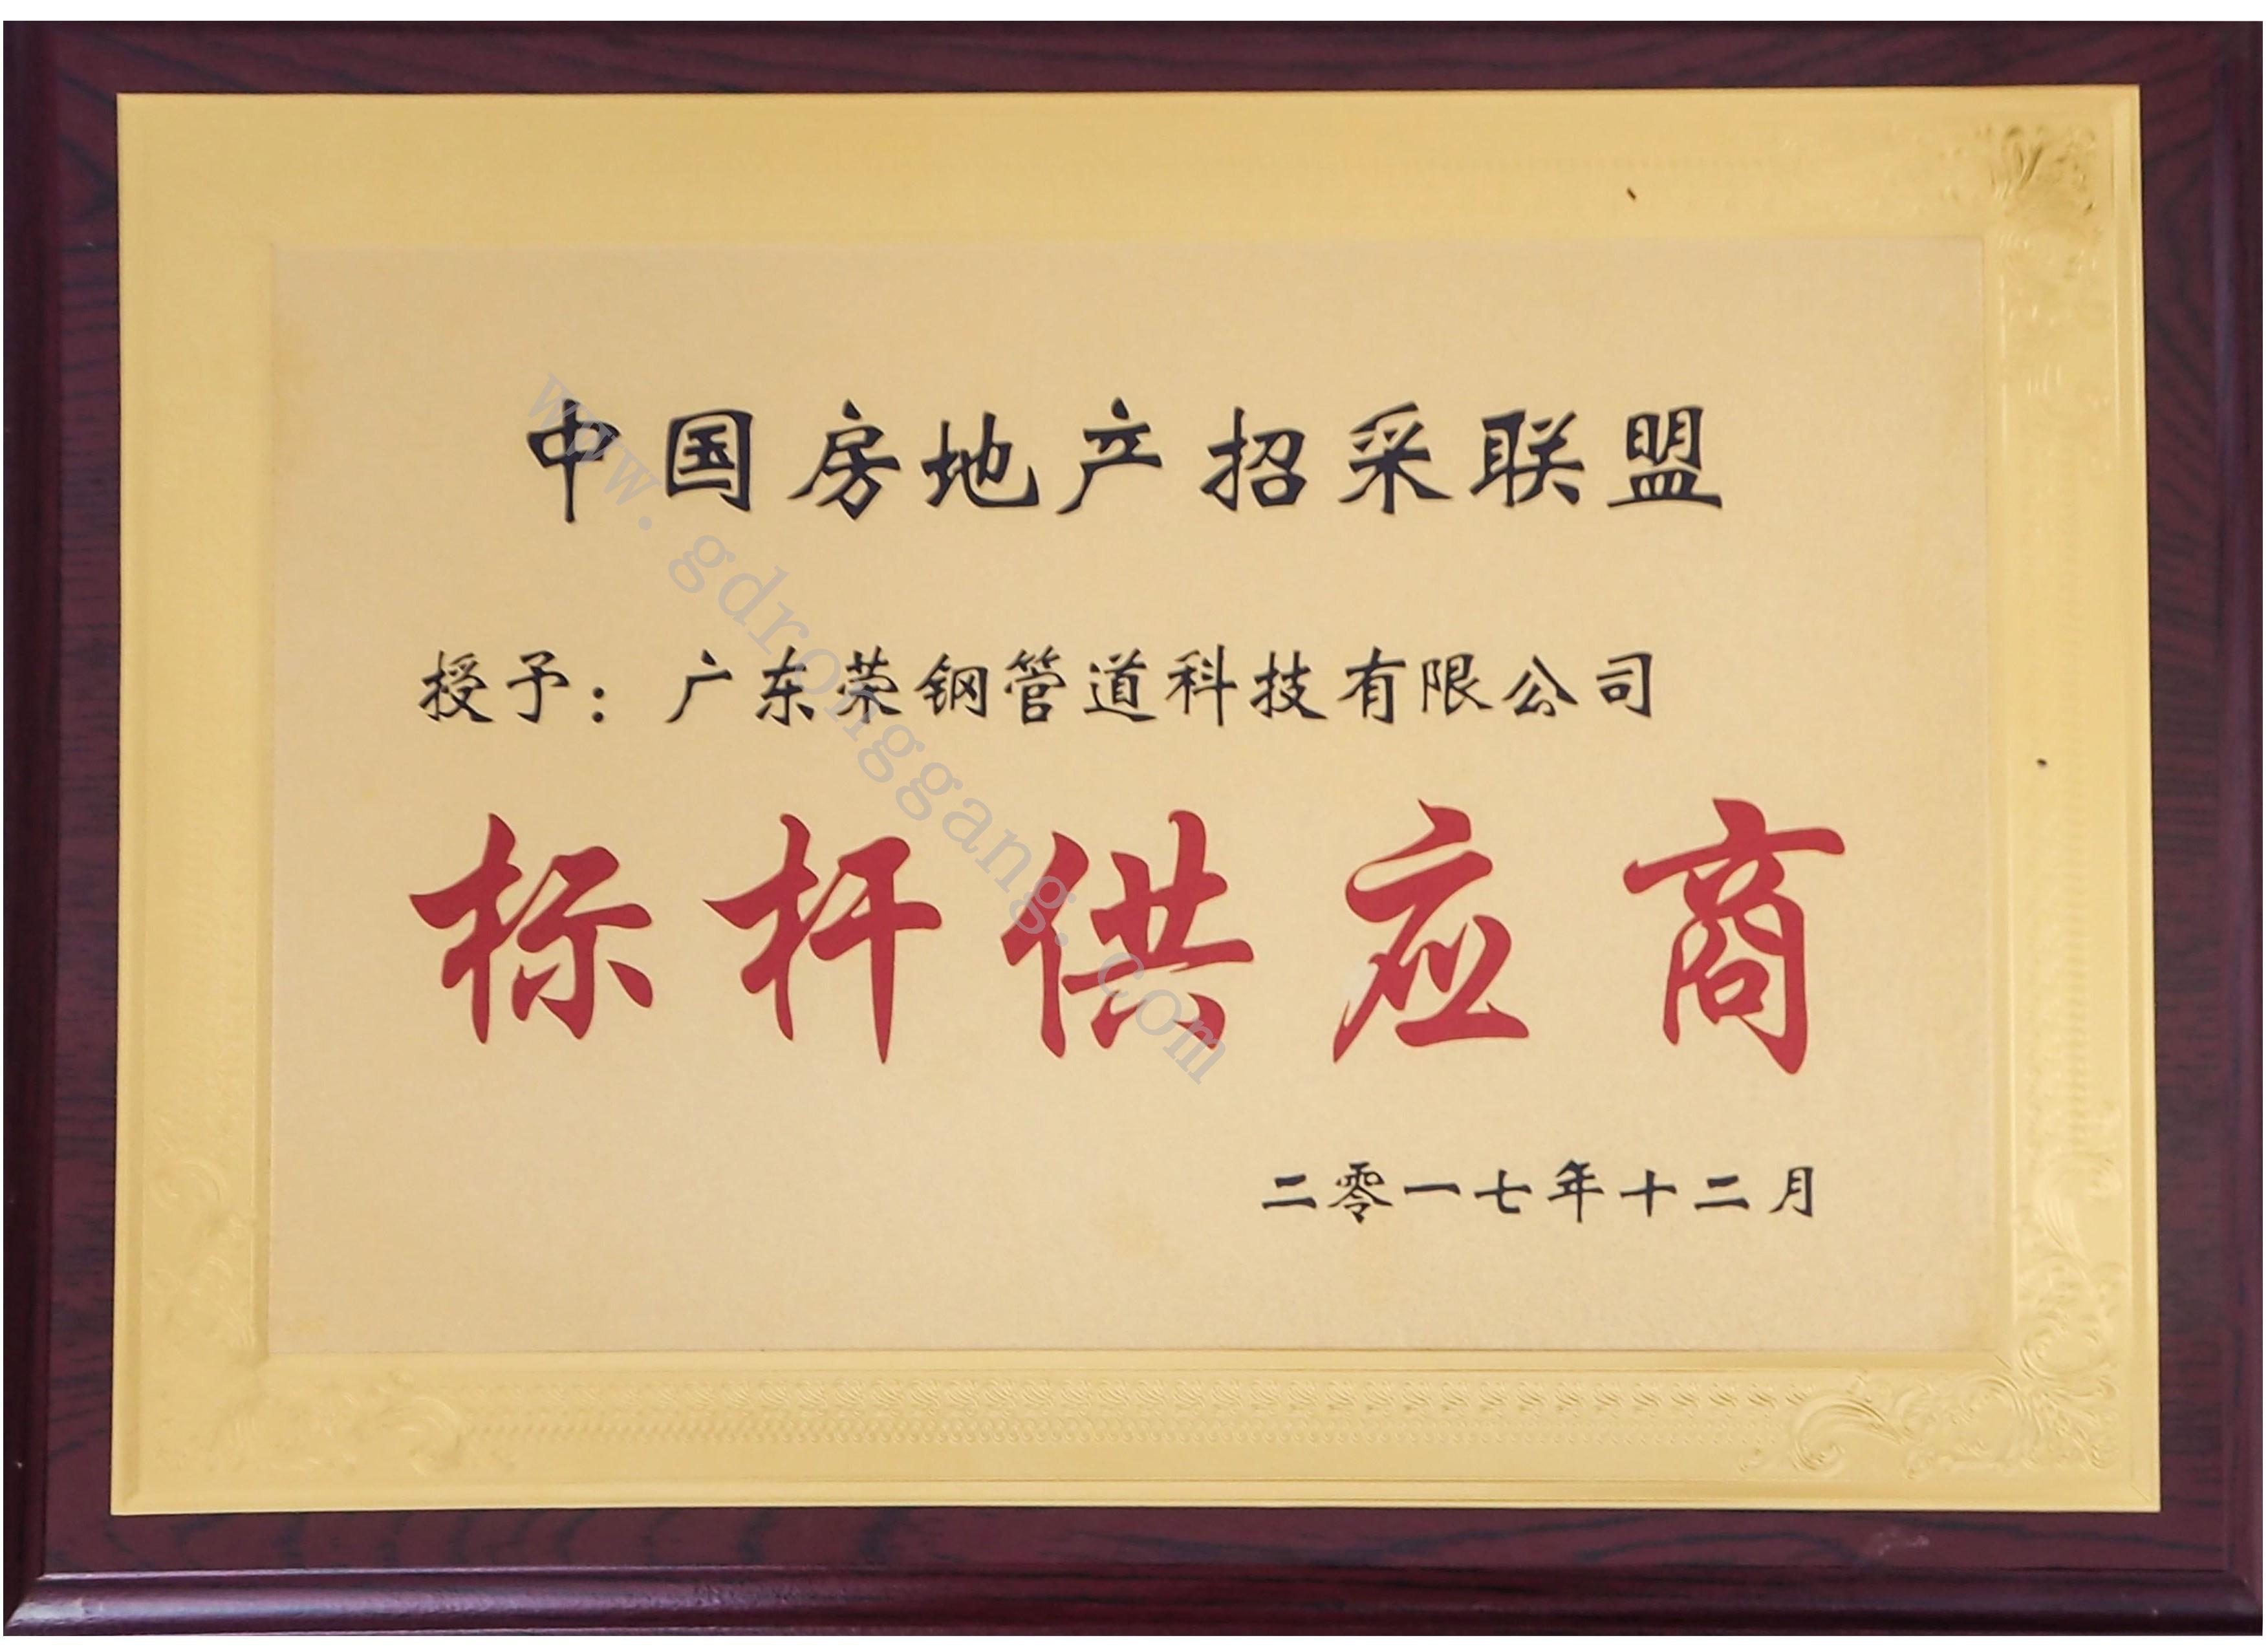 中国房地产招采联盟
授予：广东荣钢管道科技有限公司
标杆供应商
二零一七年十二月
www.gdronggang.com